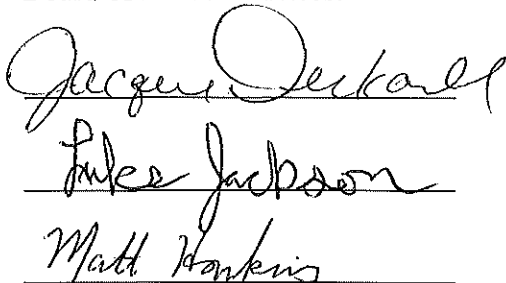 Jacque Deckard
Luke Jackson
Matt Hankins